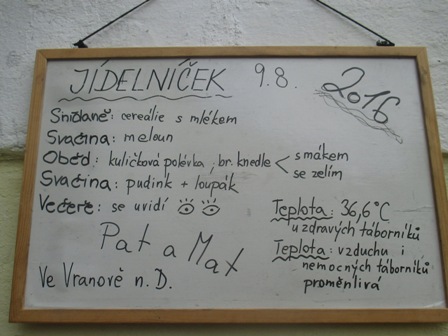 JÍDELNÍČEK 9.8. 2016
Snídaně: cereálie s mlékem
Svačina: meloun
Oběd: kuličková polévka, br. knedle < s mákem
se zelím
Svačina: pudink + loupák
Večeře: se uvidí
Teplota: 36,6°C
u zdravých táborníků
Teplota: vzduchu i
nemocných táborníků
proměnlivá
Pat a Mat
Ve Vranově n. D.